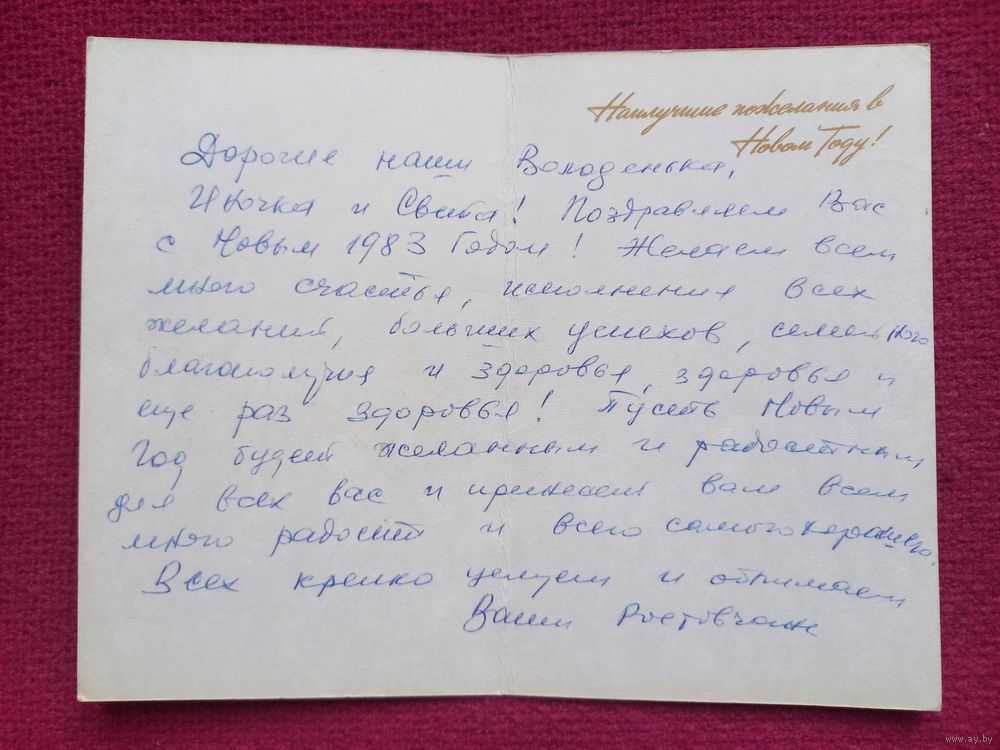 Наилучшие пожелания в
Новом Году!
Дорогие наши Володенька,
Инночка и Света! Поздравляем Вас
с Новым 1983 Годом! Желаем всем
много счастья, исполнения всех
желаний, больших успехов, семейного
благополучия и здоровья, здоровья и
еще раз здоровья! Пусть Новым
Год будет желанным и радостным
для всех вас и принесет вам всем
много радости и всего самого хорошего.
Всех крепко целуем и обнимаем
Ваши Ростовчане
www.ay.by